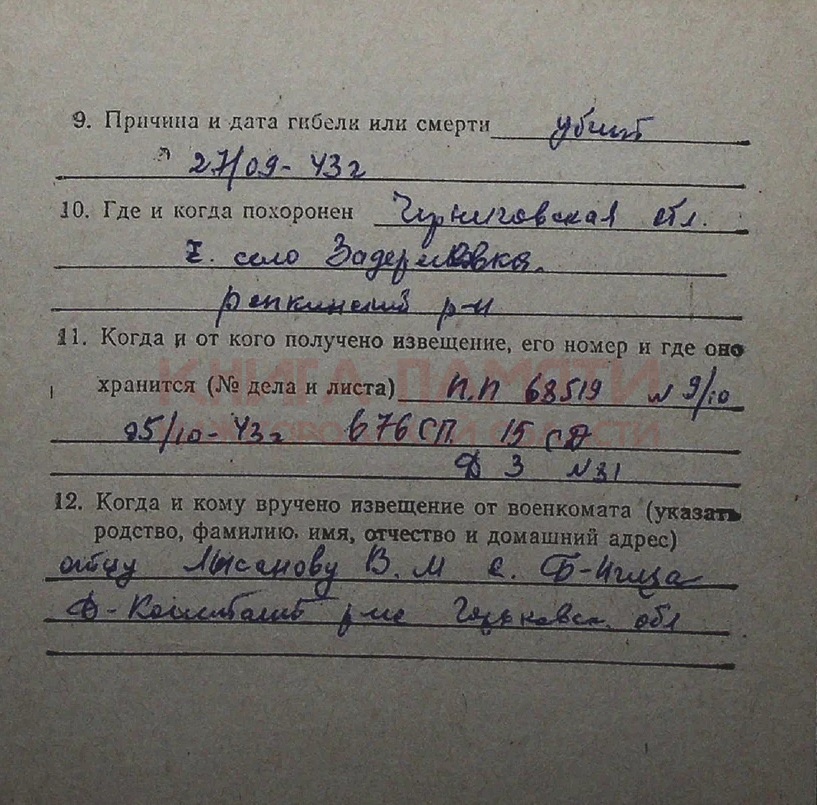 9. Причина и дата гибели или смерти убит
27/09-43г
10. Где и когда похоронен Черниговская обл.
село Задериевка.
Репкинский р-н
11. Когда и от кого получено извещение, его номер и где оно
хранится (№ дела и листа) П.П 68519 № 9/10
25/10-43г 676 СП 15 СД
Д 3 №31
12. Когда и кому вручено извещение от военкомата (указать
родство, фамилию, имя, отчество и домашний адрес)
отцу Лысанову В. М с.
р-на Горьковск. обл
КНИГА ПАМЯТИ
ОБЛАСТИ